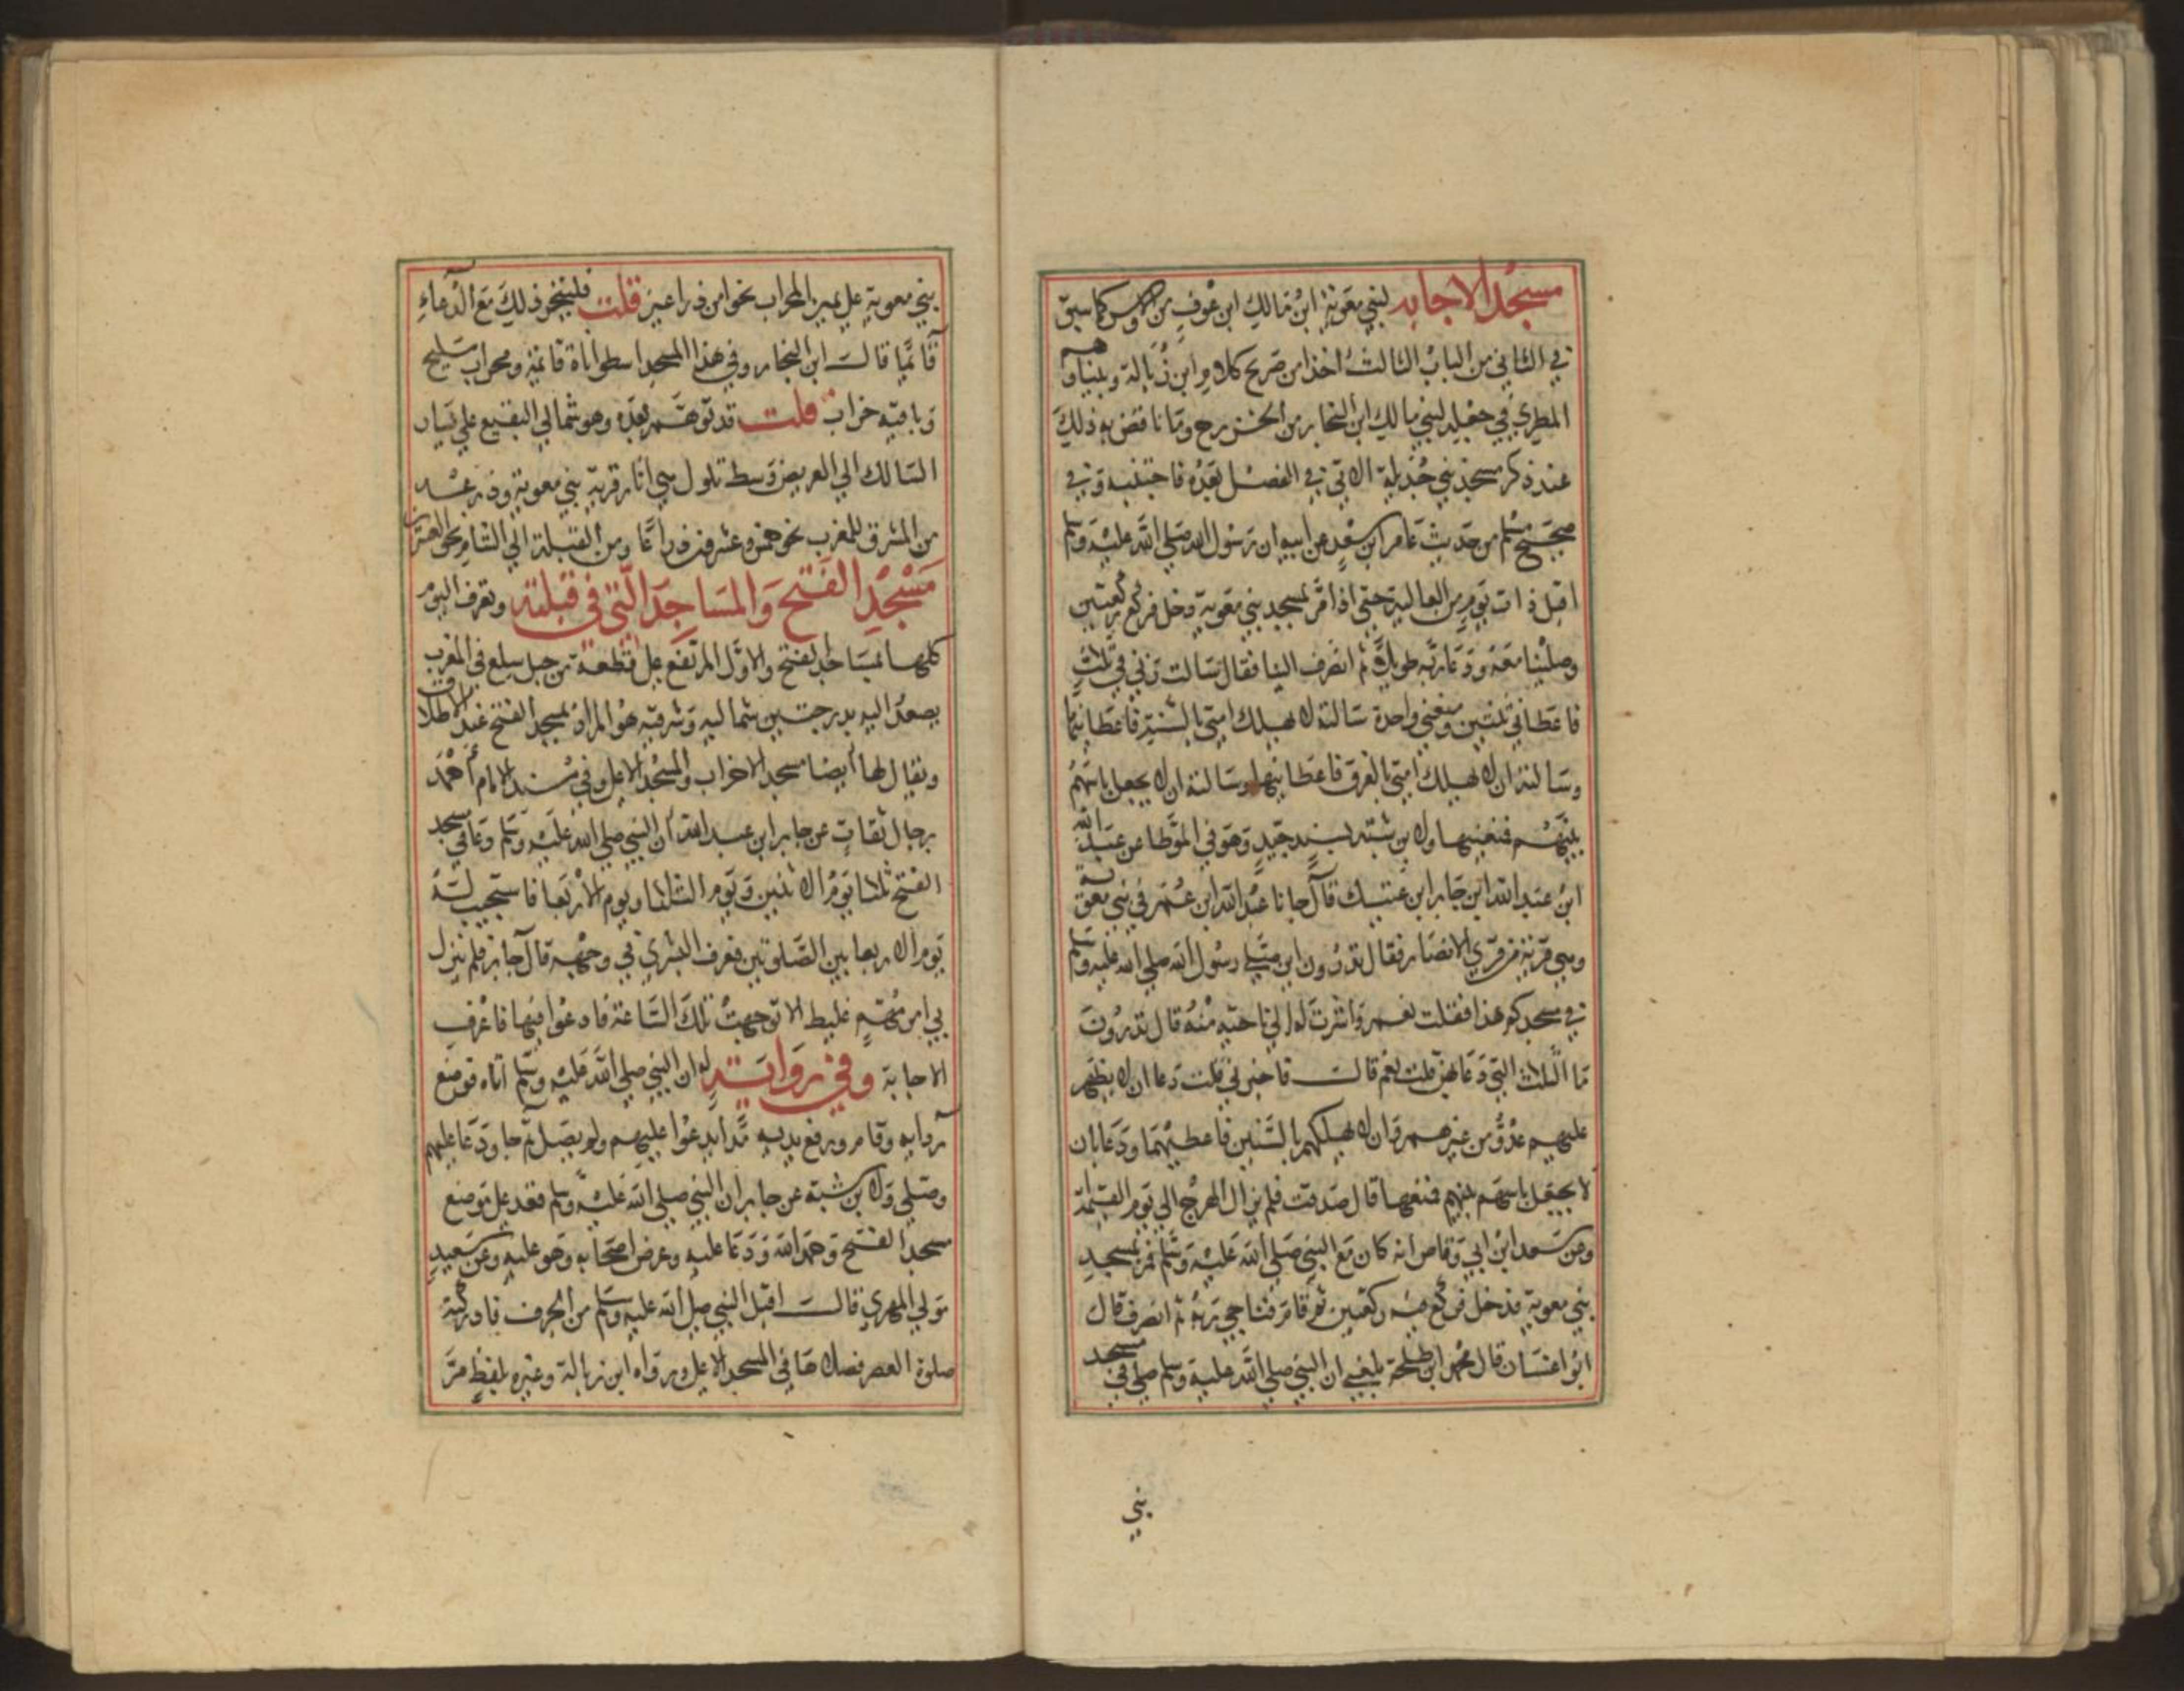 مسجد الاجابه لبني معوية ابن مالك ابن عوف من الاوس كما سبق
في الثاني من الباب الثالث اخذا من صريح كلام ابن زبالة وبينا وهم
المطري في جعله لبني مالك ابن النجار من الخزرج وما ناقض به ذلك
عند ذكر مسجد بني جذيلة الاتي في الفصل بعده فاجتنبه وفي
صحيح مسلم من حديث عامر ابن سعد عن ابيه ان رسول الله صلى الله عليه وسلم
اقبل ذات يوم من العالية حتى اذا مر بمسجد بني معوية دخل فركع ركعتين
وصلينا معه ودعا ربه طويلا ثم انصرف الينا فقال سالت ربي ثلاث
فاعطاني ثنتين ومنعني واحدة سالته ان لا يهلك امتي بالسنة فاعطانيها
وسالته ان لا يهلك امتي بالغرق فاعطانيها وسالته ان لا يجعل باسهم
بينهم فمنعنيها ولابن شبه بسند جيد وهو في الموطا عن عبد الله
ابن عبد الله ابن جابر ابن عتيك قال جانا عبد الله ابن عمر في بني معوية
وهي قرية من قرى الانصار فقال تدرون اين صلى رسول الله صلى الله عليه وسلم
في مسجدكم هذا فقلت نعم واشرت له الى ناحيه منه قال تدرون
ما الثلاث التي دعا بهن قلت نعم قال فاخبرني قلت دعا ان لا يظهر
عليهم عدو من غيرهم وان لا يهلكهم بالسنين فاعطيهما ودعا بان
لا يجعل باسهم بينهم فمنعها قال صدقت فلم يزال الهرج الى يوم القيمة
وعن سعد ابن ابي وقاص انه كان مع النبي صلى الله عليه وسلم فمر بمسجد
بني معوية فدخل فركع فيه ركعتين ثم قام فناجى ربه ثم انصرف قال
ابو اغسان قال محمد ابن طلحة بلغني ان النبي صلى الله عليه وسلم صلى في مسجد
بني
بني معوية على يمين المحراب نحوا من ذراعين قلت فليتحر ذلك مع الدعاء
قائما قال ابن النجار وفي هذا المسجد اسطوانات قائمة ومحراب مليح
وباقيه خراب قلت قد توهم بعده وهو شمالي البقيع على يسار
السالك الى العريض وسط تلول هي اثار قرية بني معوية وذرعه
من المشرق للمغرب نحو خمس وعشرون ذراعا ومن القبلة الى الشام نحو العشرين
مسجد الفتح والمساجد التي في قبلته وتعرف اليوم
كلها بمساجد الفتح والاول المرتفع على قطعة من جبل سلع في المغرب
يصعد اليه بدرجتين شماليه وشرقيه هو المراد بمسجد الفتح عند الاطلاق
ويقال لها ايضا مسجد الاحزاب والمسجد الاعلى وفي مسند الامام احمد
برجال ثقات عن جابر ابن عبد الله ان النبي صلى الله عليه وسلم دعا في مسجد
الفتح ثلاثا يوم الاثنين ويوم الثلثا ويوم الاربعا فاستجيب له
يوم الاربعا بين الصلوتين فعرف البشري في وجهه قال جابر فلم ينزل
بي امر مهم غليظ الا توجهت تلك الساعة فادعوا فيها فاعرف
الاجابة وفي رواية له ان النبي صلى الله عليه وسلم اتاه فوضع
ردايه وقام ورفع يديه مدا يدعوا عليهم ولم يصل ثم جا ودعا عليهم
وصلى ولابن شبة عن جابر ان النبي صلى الله عليه وسلم قعد على موضع
مسجد الفتح وحمد الله ودعا عليه وعرض اصحابه وهو عليه وعن سعيد
مولى المهري قال اقبل النبي صلى الله عليه وسلم من الجرف فادركته
صلوة العصر فصلاها في المسجد الاعلى ورواه ابن زبالة وغيره بلفظ مر